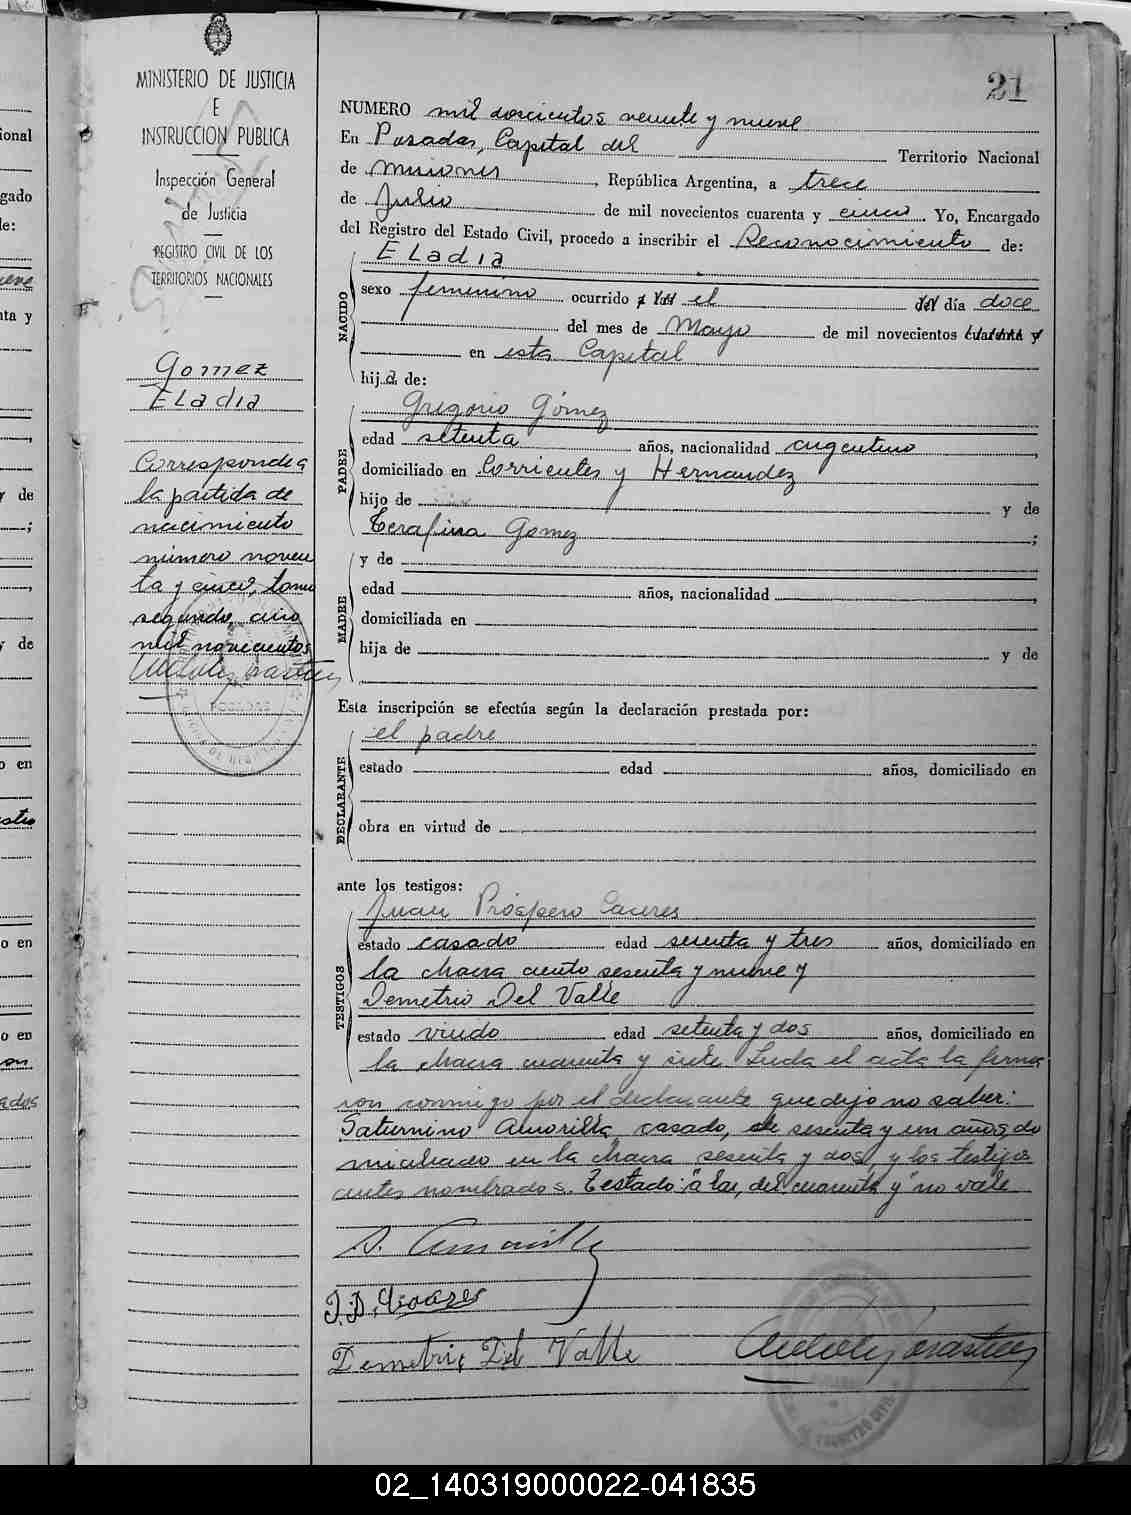 21
MINISTERIO DE JUSTICIA
E
INSTRUCCION PUBLICA
Inspección General
de Justicia
REGISTRO CIVIL DE LOS
TERRITORIOS NACIONALES
Gomez
Eladia
Corresponde a
la partida de
nacimiento
número noven
ta y cinco, tomo
segundo, año
mil novecientos
NUMERO mil doscientos veinte y nueve
En Posadas, Capital del Territorio Nacional
de Misiones, República Argentina, a trece
de Julio de mil novecientos cuarenta y cinco. Yo, Encargado
del Registro del Estado Civil, procedo a inscribir el Reconocimiento de:
NACIDO
Eladia
sexo femenino ocurrido a las el del día doce
del mes de Mayo de mil novecientos cuarenta y
en esta Capital
hija de:
PADRE
Gregorio Gómez
edad setenta años, nacionalidad argentino,
domiciliado en Corrientes y Hernandez
hijo de y de
Serafina Gomez;
MADRE
y de
edad años, nacionalidad,
domiciliada en
hija de y de
Esta inscripción se efectúa según la declaración prestada por:
DECLARANTE
el padre
estado edad años, domiciliado en
obra en virtud de
ante los testigos:
TESTIGOS
Juan Próspero Caceres
estado casado edad sesenta y tres años, domiciliado en
la chacra ciento sesenta y nueve y
Demetrio Del Valle
estado viudo edad setenta y dos años, domiciliado en
la chacra cuarenta y siete Leida el acta la firma
ron conmigo por el declarante que dijo no saber:
Saturnino Amarilla, casado, de sesenta y un años, do
miciliado en la chacra sesenta y dos, y los testigos
antes nombrados. Testado: "a las, del cuarenta y" no vale
S. Amarilla
Demetrio Del Valle
02_140319000022-041835